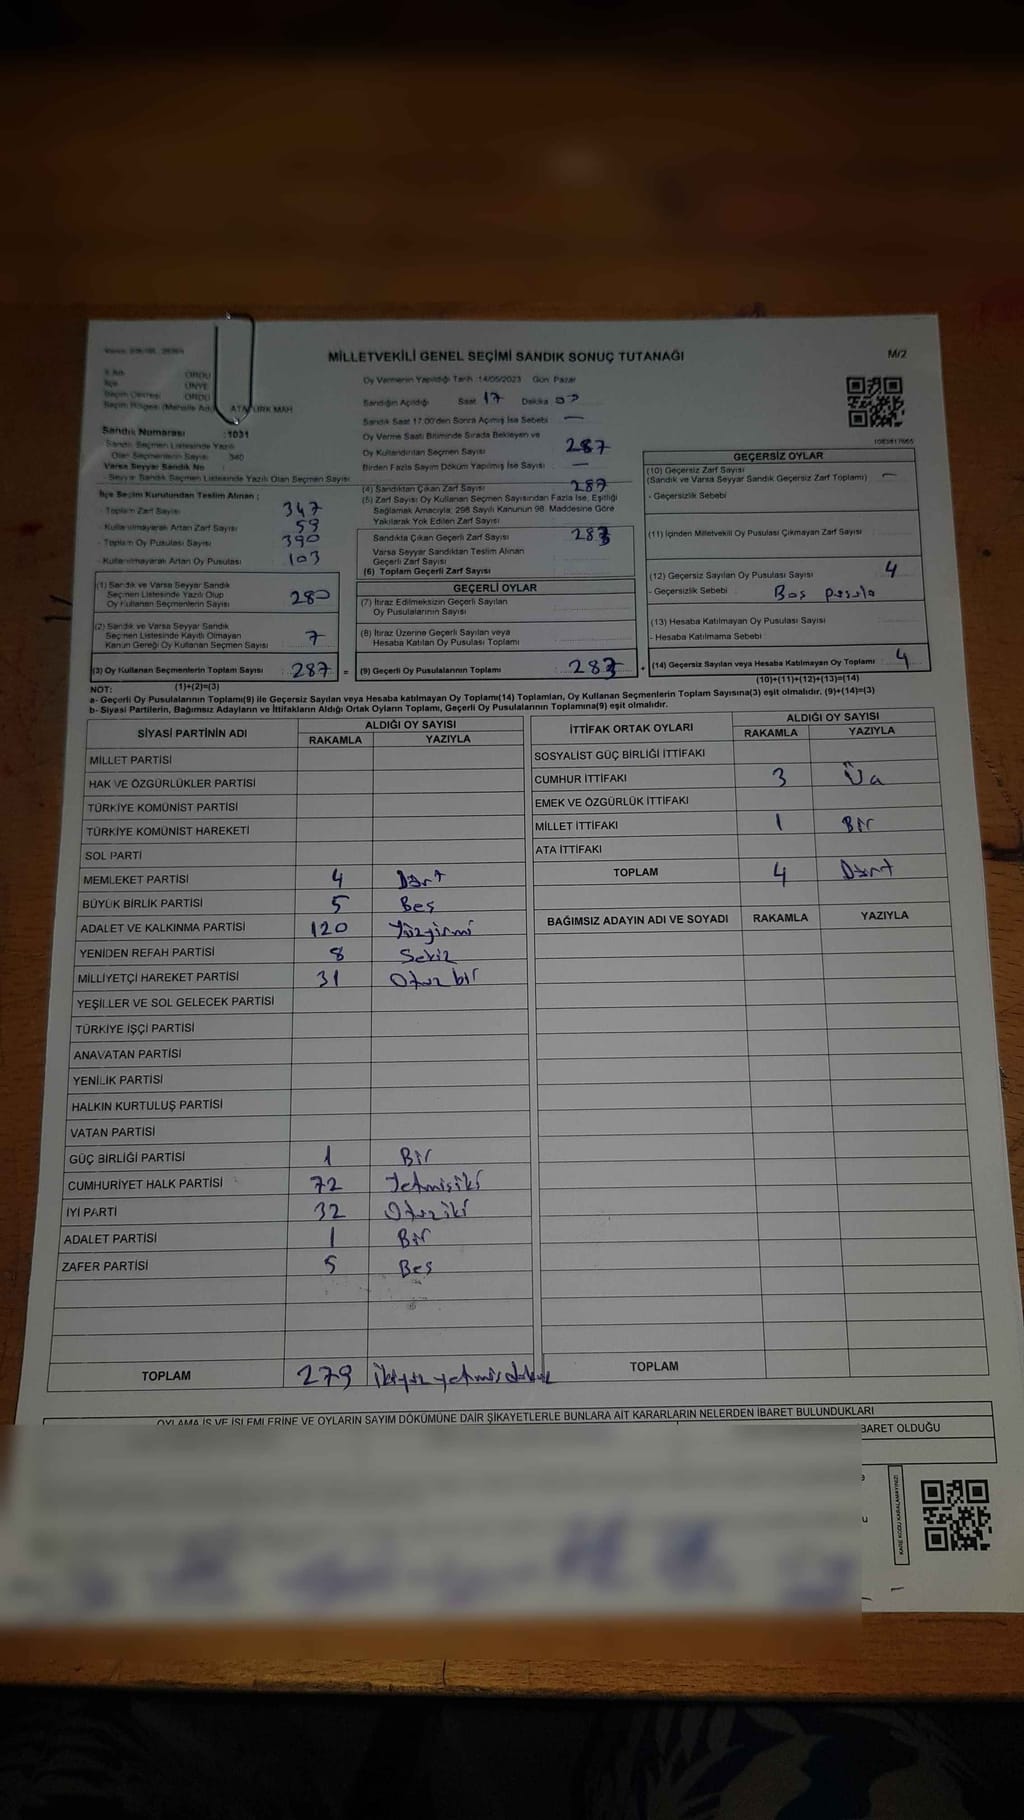 MİLLETVEKİLİ GENEL SEÇİMİ SANDIK SONUÇ TUTANAĞI
M/2
İl Adı ORDU
İlçe ÜNYE
Seçim Çevresi ORDU
Seçim Bölgesi (Mahalle Adı) ATATÜRK MAH
Sandık Numarası :1031
Sandık Seçmen Listesinde Yazılı
Olan Seçmenlerin Sayısı 340
Varsa Seyyar Sandık No :
Seyyar Sandık Seçmen Listesinde Yazılı Olan Seçmen Sayısı
İlçe Seçim Kurulundan Teslim Alınan ;
- Toplam Zarf Sayısı 347
- Kullanılmayarak Artan Zarf Sayısı 59
- Toplam Oy Pusulası Sayısı 390
- Kullanılmayarak Artan Oy Pusulası 103
(1) Sandık ve Varsa Seyyar Sandık
Seçmen Listesinde Yazılı Olup
Oy Kullanan Seçmenlerin Sayısı 280
(2) Sandık ve Varsa Seyyar Sandık
Seçmen Listesinde Kayıtlı Olmayan
Kanun Gereği Oy Kullanan Seçmen Sayısı 7
(3) Oy Kullanan Seçmenlerin Toplam Sayısı 287 =
(1)+(2)=(3)
Oy Vermenin Yapıldığı Tarih :14/05/2023 Gün: Pazar
Sandığın Açıldığı Saat 17 Dakika
Sandık Saat 17.00'den Sonra Açılmış İse Sebebi —
Oy Verme Saati Bitiminde Sırada Bekleyen ve
Oy Kullandırılan Seçmen Sayısı 287
Birden Fazla Sayım Döküm Yapılmış İse Sayısı —
(4) Sandıktan Çıkan Zarf Sayısı 287
(5) Zarf Sayısı Oy Kullanan Seçmen Sayısından Fazla İse, Eşitliği
Sağlamak Amacıyla; 298 Sayılı Kanunun 98. Maddesine Göre
Yakılarak Yok Edilen Zarf Sayısı
Sandıkta Çıkan Geçerli Zarf Sayısı 283
Varsa Seyyar Sandıktan Teslim Alınan
Geçerli Zarf Sayısı
(6) Toplam Geçerli Zarf Sayısı
GEÇERLİ OYLAR
(7) İtiraz Edilmeksizin Geçerli Sayılan
Oy Pusulalarının Sayısı
(8) İtiraz Üzerine Geçerli Sayılan veya
Hesaba Katılan Oy Pusulası Toplamı
(9) Geçerli Oy Pusulalarının Toplamı 283 +
GEÇERSİZ OYLAR
(10) Geçersiz Zarf Sayısı
(Sandık ve Varsa Seyyar Sandık Geçersiz Zarf Toplamı) —
- Geçersizlik Sebebi
(11) İçinden Milletvekili Oy Pusulası Çıkmayan Zarf Sayısı
(12) Geçersiz Sayılan Oy Pusulası Sayısı 4
- Geçersizlik Sebebi Boş pusula
(13) Hesaba Katılmayan Oy Pusulası Sayısı
- Hesaba Katılmama Sebebi
(14) Geçersiz Sayılan veya Hesaba Katılmayan Oy Toplamı 4
(10)+(11)+(12)+(13)=(14)
NOT:
a- Geçerli Oy Pusulalarının Toplamı(9) ile Geçersiz Sayılan veya Hesaba katılmayan Oy Toplamı(14) Toplamları, Oy Kullanan Seçmenlerin Toplam Sayısına(3) eşit olmalıdır. (9)+(14)=(3)
b- Siyasi Partilerin, Bağımsız Adayların ve İttifakların Aldığı Ortak Oyların Toplamı, Geçerli Oy Pusulalarının Toplamına(9) eşit olmalıdır.
SİYASİ PARTİNİN ADI ALDIĞI OY SAYISI
RAKAMLA YAZIYLA
MİLLET PARTİSİ
HAK VE ÖZGÜRLÜKLER PARTİSİ
TÜRKİYE KOMÜNİST PARTİSİ
TÜRKİYE KOMÜNİST HAREKETİ
SOL PARTİ
MEMLEKET PARTİSİ 4 Dört
BÜYÜK BİRLİK PARTİSİ 5 Beş
ADALET VE KALKINMA PARTİSİ 120 Yüzyirmi
YENİDEN REFAH PARTİSİ 8 Sekiz
MİLLİYETÇİ HAREKET PARTİSİ 31 Otuz bir
YEŞİLLER VE SOL GELECEK PARTİSİ
TÜRKİYE İŞÇİ PARTİSİ
ANAVATAN PARTİSİ
YENİLİK PARTİSİ
HALKIN KURTULUŞ PARTİSİ
VATAN PARTİSİ
GÜÇ BİRLİĞİ PARTİSİ 1 Bir
CUMHURİYET HALK PARTİSİ 72 Yetmişiki
İYİ PARTİ 32 Otuziki
ADALET PARTİSİ 1 Bir
ZAFER PARTİSİ 5 Beş
TOPLAM 279 ikiyüzyetmişdokuz
İTTİFAK ORTAK OYLARI ALDIĞI OY SAYISI
RAKAMLA YAZIYLA
SOSYALİST GÜÇ BİRLİĞİ İTTİFAKI
CUMHUR İTTİFAKI 3 Üç
EMEK VE ÖZGÜRLÜK İTTİFAKI
MİLLET İTTİFAKI 1 Bir
ATA İTTİFAKI
TOPLAM 4 Dört
BAĞIMSIZ ADAYIN ADI VE SOYADI RAKAMLA YAZIYLA
TOPLAM
OYLAMA İŞ VE İŞLEMLERİNE VE OYLARIN SAYIM DÖKÜMÜNE DAİR ŞİKAYETLERLE BUNLARA AİT KARARLARIN NELERDEN İBARET BULUNDUKLARI
BARET OLDUĞU
KARE KODU KARALAMAYINIZ!